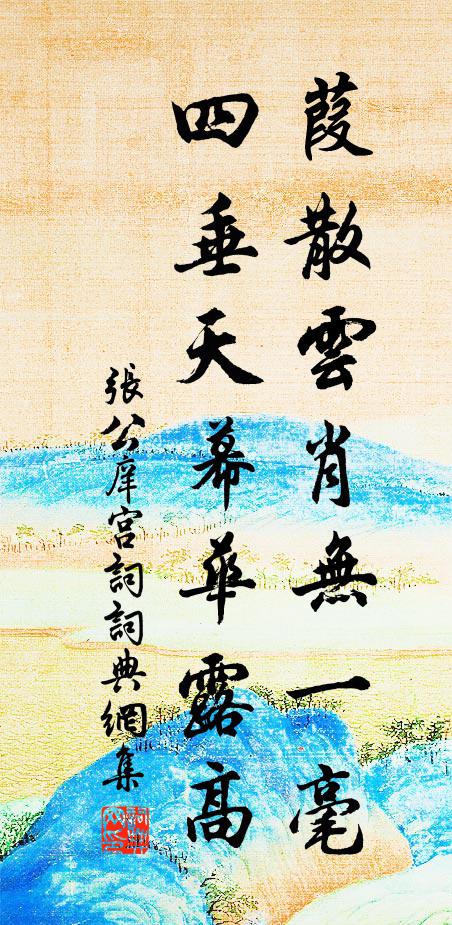 葭散雲肖無一毫
四垂天幕華露高
張公庠宮詞詞典網集